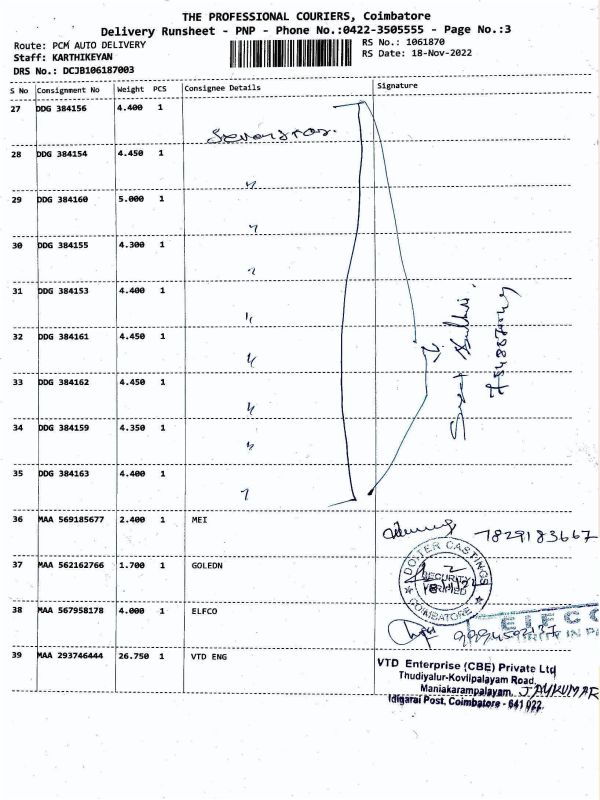 THE PROFESSIONAL COURIERS, Coimbatore
Delivery Runsheet - PNP - Phone No.:0422-3505555 - Page No.:3
Route: PCM AUTO DELIVERY
RS No.: 1061870
Staff: KARTHIKEYAN
RS Date: 18-Nov-2022
DRS No.: DCJB106187003
S No Consignment No Weight PCS Consignee Details Signature
27 DDG 384156 4.400 1
28 DDG 384154 4.450 1
29 DDG 384160 5.000 1
30 DDG 384155 4.300 1
31 DDG 384153 4.400 1
32 DDG 384161 4.450 1
33 DDG 384162 4.450 1
34 DDG 384159 4.350 1
35 DDG 384163 4.400 1
36 MAA 569185677 2.400 1 MEI
7829183667
37 MAA 562162766 1.700 1 GOLEDN
CASTINGS
SECURITY
VERIFIED
COIMBATORE
38 MAA 567958178 4.000 1 ELFCO
39 MAA 293746444 26.750 1 VTD ENG
VTD Enterprise (CBE) Private Ltd
Thudiyalur-Kovilpalayam Road,
Maniakarampalayam, JAYKUMAR
Idigarai Post, Coimbatore - 641 022.